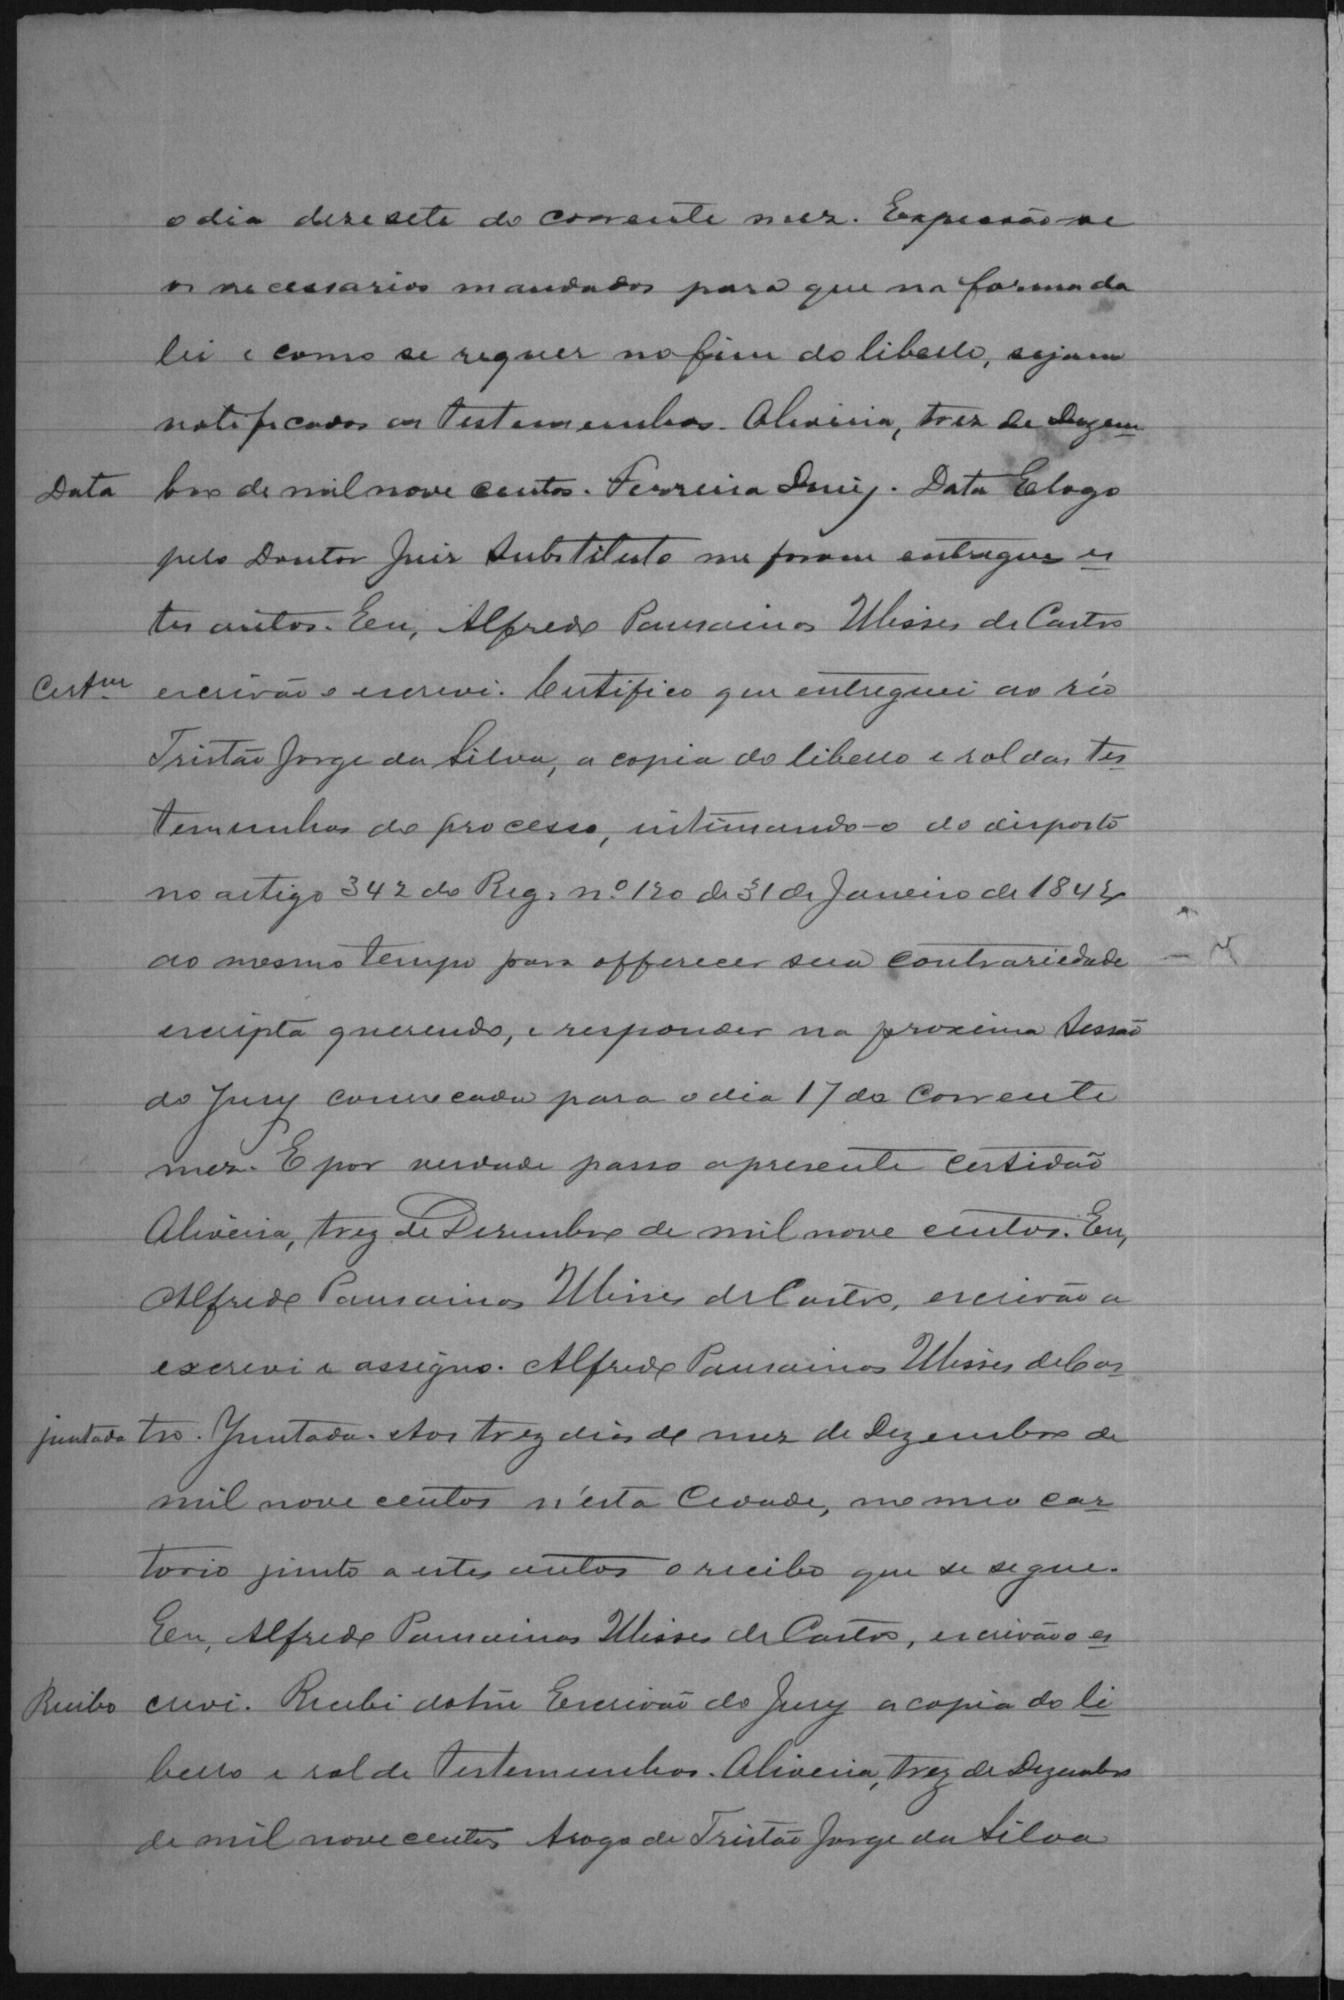 o dia dezesete do corrente mez. Expessão-se
os necessarios mandados para que na forma da
lei e como se requer no fim do libello, sejam
notificados as testemunhas. Oliveira, trez de Dezem
Data bro de mil nove centos. Ferreira Diniz. Data E logo
pelo Doutor Juiz Substituto me foram entregues es
tes autos. Eu, Alfredo Pausainos Ulisses de Castro
Certam escrivão o escrevi. Certifico que entreguei ao réo
Tristão Jorge da Silva, a copia do libello e rol das tes
temunhas do processo, intimando-o do disposto
no artigo 342 do Reg. nº 120 de 31 de Janeiro de 1842
ao mesmo tempo para offerecer sua contrariedade
escripta querendo, e responder na proxima Sessão
do Jury convocada para o dia 17 do corrente
mez. E por verdade passo a presente certidão
Oliveira, trez de Dezembro de mil nove centos. Eu,
Alfredo Pausainos Ulisses de Castro, escrivão a
escrevi e assigno. Alfredo Pausainos Ulisses de Cas
juntada tro. Juntada. Aos trez dias do mez de Dezembro de
mil nove centos n'esta Cidade, no meo car
torio junto a estes autos o recibo que se segue.
Eu, Alfredo Pausainos Ulisses de Castro, escrivão o es
Recibo crevi. Recebi do Snr Escrivão do Jury a copia do li
bello e rol de testemunhas. Oliveira, trez de Dezembro
de mil nove centos Arogo de Tristão Jorge da Silva